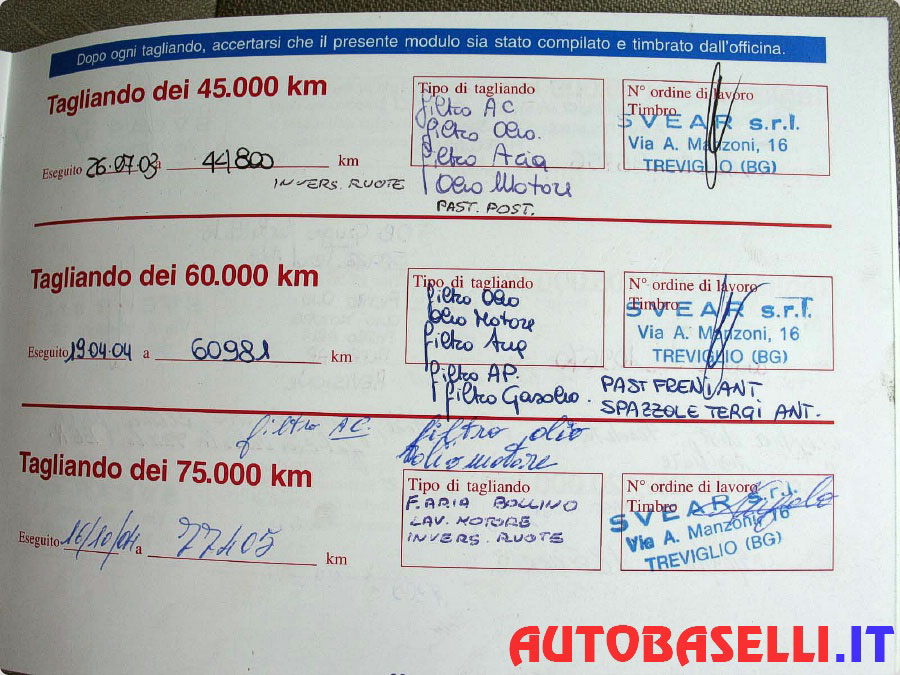 Dopo ogni tagliando, accertarsi che il presente modulo sia stato compilato e timbrato dall'officina.
Tagliando dei 45.000 km
Tipo di tagliando
filtro AC
filtro Olio.
filtro Aria
Olio Motore
PAST. POST.
N° ordine di lavoro
Timbro
SVEAR s.r.l.
Via A. Manzoni, 16
TREVIGLIO (BG)
Eseguito 26.07.03 a 44800 km
INVERS. RUOTE
Tagliando dei 60.000 km
Tipo di tagliando
filtro Olio
Olio Motore
filtro Aria
filtro AP.
filtro Gasolio.
PAST FRENI ANT.
SPAZZOLE TERGI ANT.
N° ordine di lavoro
Timbro
SVEAR s.r.l.
Via A. Manzoni, 16
TREVIGLIO (BG)
Eseguito 19.04.04 a 60981 km
filtro AC. filtro olio
olio motore
Tagliando dei 75.000 km
Tipo di tagliando
F. ARIA BOLLINO
LAV. MOTORE
INVERS. RUOTE
N° ordine di lavoro
Timbro
SVEAR s.r.l.
Via A. Manzoni, 16
TREVIGLIO (BG)
Eseguito 16/10/04 a 77405 km
AUTOBASELLI.IT